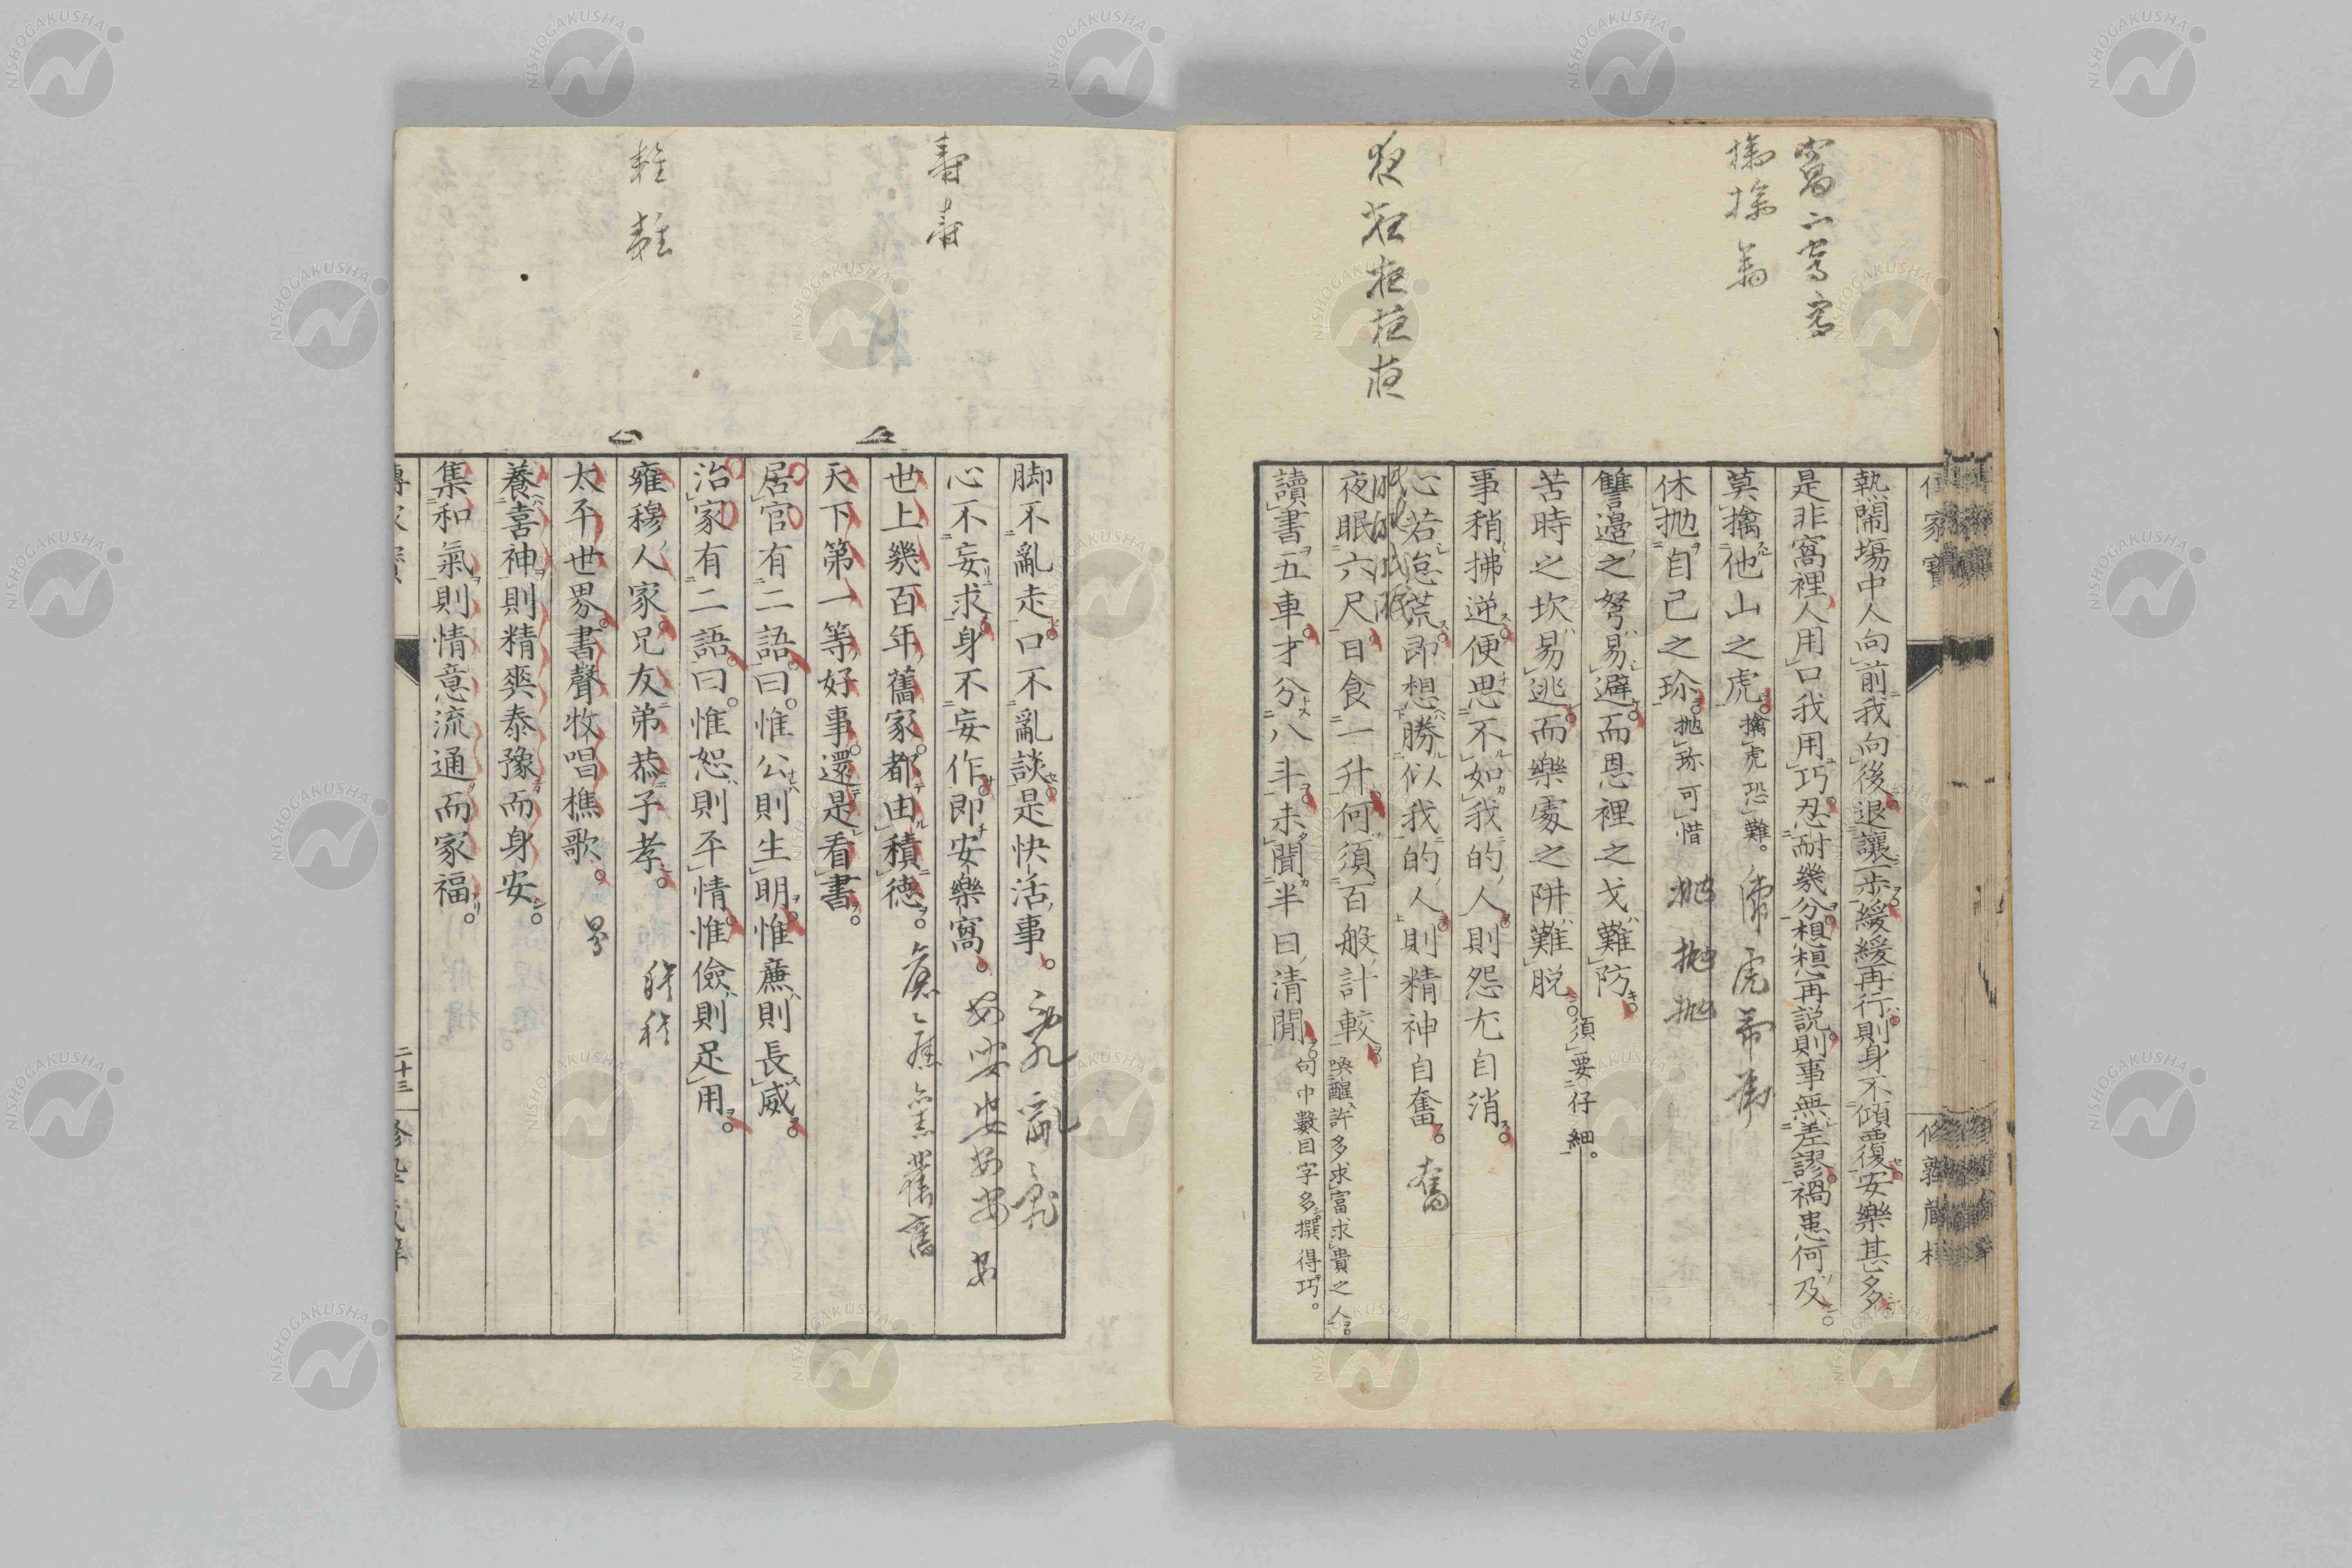 熱閙場中人向前我向後退讓一歩緩緩再行則身不傾覆安樂甚多
是非窩裡人用口我用巧忍耐幾分想想再説則事無差謬禍患何及
莫擒他山之虎擒虎恐難
休抛自己之珎抛珎可惜
讐邉之弩易避而恩裡之戈難防
苦時之坎易逃而樂處之阱難脱須要仔細
事稍拂逆便思不如我的人則怨尤自消
心若怠荒即想勝似我的人則精神自奮
夜眠六尺日食一升何須百般計較喚醒許多求富求貴之人
讀書五車才分八斗未聞半日清閒句中數目字多撰得巧
脚不亂走口不亂談是快活事
心不妄求身不妄作即安樂窩
世上幾百年舊家都由積德
天下第一等好事還是看書
居官有二語曰惟公則生明惟廉則長威
治家有二語曰惟恕則平情惟儉則足用
雍穆人家兄友弟恭子孝
太平世界書聲牧唱樵歌
養喜神則精爽泰豫而身安
集和氣則情意流通而家福
二十三
NISHOGAKUSHA